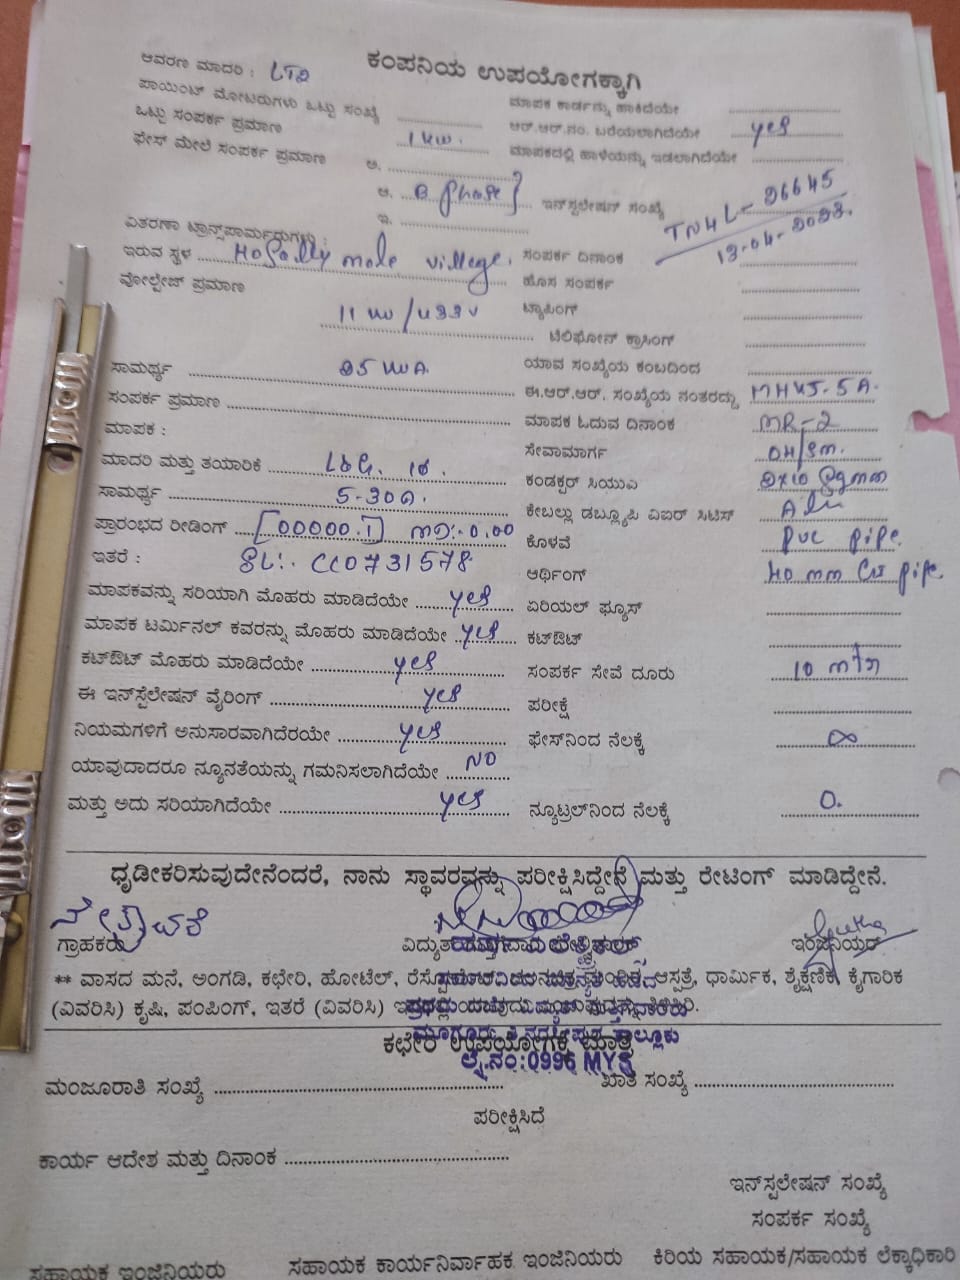 ಕಂಪನಿಯ ಉಪಯೋಗಕ್ಕಾಗಿ
ಆವರಣ ಮಾದರಿ : LT2
ಪಾಯಿಂಟ್ ಮೋಟರುಗಳು ಒಟ್ಟು ಸಂಖ್ಯೆ
ಒಟ್ಟು ಸಂಪರ್ಕ ಪ್ರಮಾಣ 1 KW.
ಫೇಸ್ ಮೇಲೆ ಸಂಪರ್ಕ ಪ್ರಮಾಣ ಅ.
ಆ. B phase }
ಇ.
ವಿತರಣಾ ಟ್ರಾನ್ಸ್‌ಫಾರ್ಮರುಗಳು :
ಇರುವ ಸ್ಥಳ Hosally mole village.
ವೋಲ್ಟೇಜ್ ಪ್ರಮಾಣ
ಸಾಮರ್ಥ್ಯ
ಸಂಪರ್ಕ ಪ್ರಮಾಣ
ಮಾಪಕ :
ಮಾದರಿ ಮತ್ತು ತಯಾರಿಕೆ L&G. 1Φ.
ಸಾಮರ್ಥ್ಯ 5-30A.
ಪ್ರಾರಂಭದ ರೀಡಿಂಗ್ [00000.1] MD:-0.00
ಇತರೆ : SL:. CC0731578
ಮಾಪಕವನ್ನು ಸರಿಯಾಗಿ ಮೊಹರು ಮಾಡಿದೆಯೇ yes
ಮಾಪಕ ಟರ್ಮಿನಲ್ ಕವರನ್ನು ಮೊಹರು ಮಾಡಿದೆಯೇ yes
ಕಟ್‌ಔಟ್ ಮೊಹರು ಮಾಡಿದೆಯೇ yes
ಈ ಇನ್‌ಸ್ಟಲೇಷನ್ ವೈರಿಂಗ್ yes
ನಿಯಮಗಳಿಗೆ ಅನುಸಾರವಾಗಿದೆರಯೇ yes
ಯಾವುದಾದರೂ ನ್ಯೂನತೆಯನ್ನು ಗಮನಿಸಲಾಗಿದೆಯೇ NO
ಮತ್ತು ಅದು ಸರಿಯಾಗಿದೆಯೇ yes
ಮಾಪಕ ಕಾರ್ಡನ್ನು ಹಾಕಿದೆಯೇ
ಆರ್.ಆರ್.ನಂ. ಬರೆಯಲಾಗಿದೆಯೇ yes
ಮಾಪಕದಲ್ಲಿ ಹಾಳೆಯನ್ನು ಇಡಲಾಗಿದೆಯೇ
ಇನ್‌ಸ್ಟಲೇಷನ್ ಸಂಖ್ಯೆ TN4L-26645
ಸಂಪರ್ಕ ದಿನಾಂಕ 13-04-2023.
ಹೊಸ ಸಂಪರ್ಕ
ಟ್ಯಾಪಿಂಗ್
ಟೆಲಿಫೋನ್ ಕ್ರಾಸಿಂಗ್
ಯಾವ ಸಂಖ್ಯೆಯ ಕಂಬದಿಂದ
ಈ.ಆರ್.ಆರ್. ಸಂಖ್ಯೆಯ ನಂತರದ್ದು
ಮಾಪಕ ಓದುವ ದಿನಾಂಕ MR-2
ಸೇವಾಮಾರ್ಗ OH/sm.
ಕಂಡಕ್ಟರ್ ಸಿಯುವಿ
ಕೇಬಲ್ಲು ಡಬ್ಲ್ಯೂಪಿ ವಿಐರ್ ಸಿಟಿಸ್ Alu
ಕೊಳವೆ pvc pipe.
ಆರ್ಥಿಂಗ್ 40 mm GI pipe.
ಏರಿಯಲ್ ಫ್ಯೂಸ್
ಕಟ್‌ಔಟ್
ಸಂಪರ್ಕ ಸೇವೆ ದೂರು 10 mtr
ಪರೀಕ್ಷೆ
ಫೇಸ್‌ನಿಂದ ನೆಲಕ್ಕೆ ∞
ನ್ಯೂಟ್ರಲ್‌ನಿಂದ ನೆಲಕ್ಕೆ 0.
ಧೃಡೀಕರಿಸುವುದೇನೆಂದರೆ, ನಾನು ಸ್ಥಾವರವನ್ನು ಪರೀಕ್ಷಿಸಿದ್ದೇನೆ ಮತ್ತು ರೇಟಿಂಗ್ ಮಾಡಿದ್ದೇನೆ.
ಗ್ರಾಹಕರು
ಇಂಜಿನಿಯರ್
** ವಾಸದ ಮನೆ, ಅಂಗಡಿ, ಕಛೇರಿ, ಹೋಟೆಲ್, ಆಸ್ಪತ್ರೆ, ಧಾರ್ಮಿಕ, ಶೈಕ್ಷಣಿಕ, ಕೈಗಾರಿಕ
(ವಿವರಿಸಿ) ಕೃಷಿ, ಪಂಪಿಂಗ್, ಇತರೆ (ವಿವರಿಸಿ)
ಕಛೇರಿ ಉಪಯೋಗಕ್ಕೆ ಮಾತ್ರ
ಲೈ.ನಂ:0996 MYS
ಮಂಜೂರಾತಿ ಸಂಖ್ಯೆ ಖಾತೆ ಸಂಖ್ಯೆ
ಪರೀಕ್ಷಿಸಿದೆ
ಕಾರ್ಯ ಆದೇಶ ಮತ್ತು ದಿನಾಂಕ
ಇನ್‌ಸ್ಟಲೇಷನ್ ಸಂಖ್ಯೆ
ಸಂಪರ್ಕ ಸಂಖ್ಯೆ
ಸಹಾಯಕ ಇಂಜಿನಿಯರು ಸಹಾಯಕ ಕಾರ್ಯನಿರ್ವಾಹಕ ಇಂಜಿನಿಯರು ಕಿರಿಯ ಸಹಾಯಕ/ಸಹಾಯಕ ಲೆಕ್ಕಾಧಿಕಾರಿ